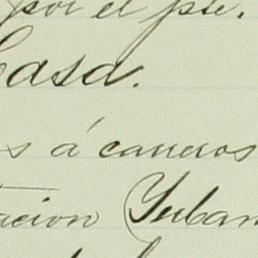 por el pte.
Casa.
s á caneros
acion (Yuban